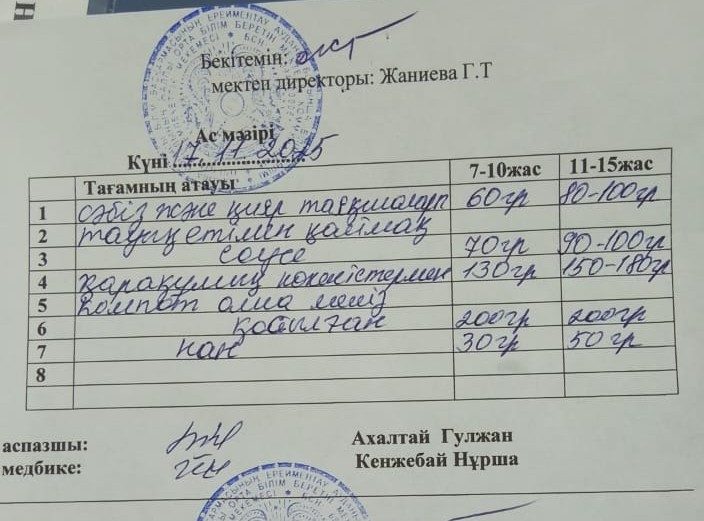 Бекітемін:
мектеп директоры: Жаниева Г.Т
Ас мәзірі
Күні 17.11.2025
Тағамның атауы 7-10жас 11-15жас
1 сәбіз және қияр таяқшалары 60гр 80-100гр
2 тауық етімен қаймақ
3 соусе 70гр 90-100гр
4 қарақұмық көкөністермен 130гр 150-180гр
5 компот алма мейіз
6 қосылған 200гр 200гр
7 нан 30гр 50гр
8
аспазшы: Ахалтай Гулжан
медбике: Кенжебай Нұрша